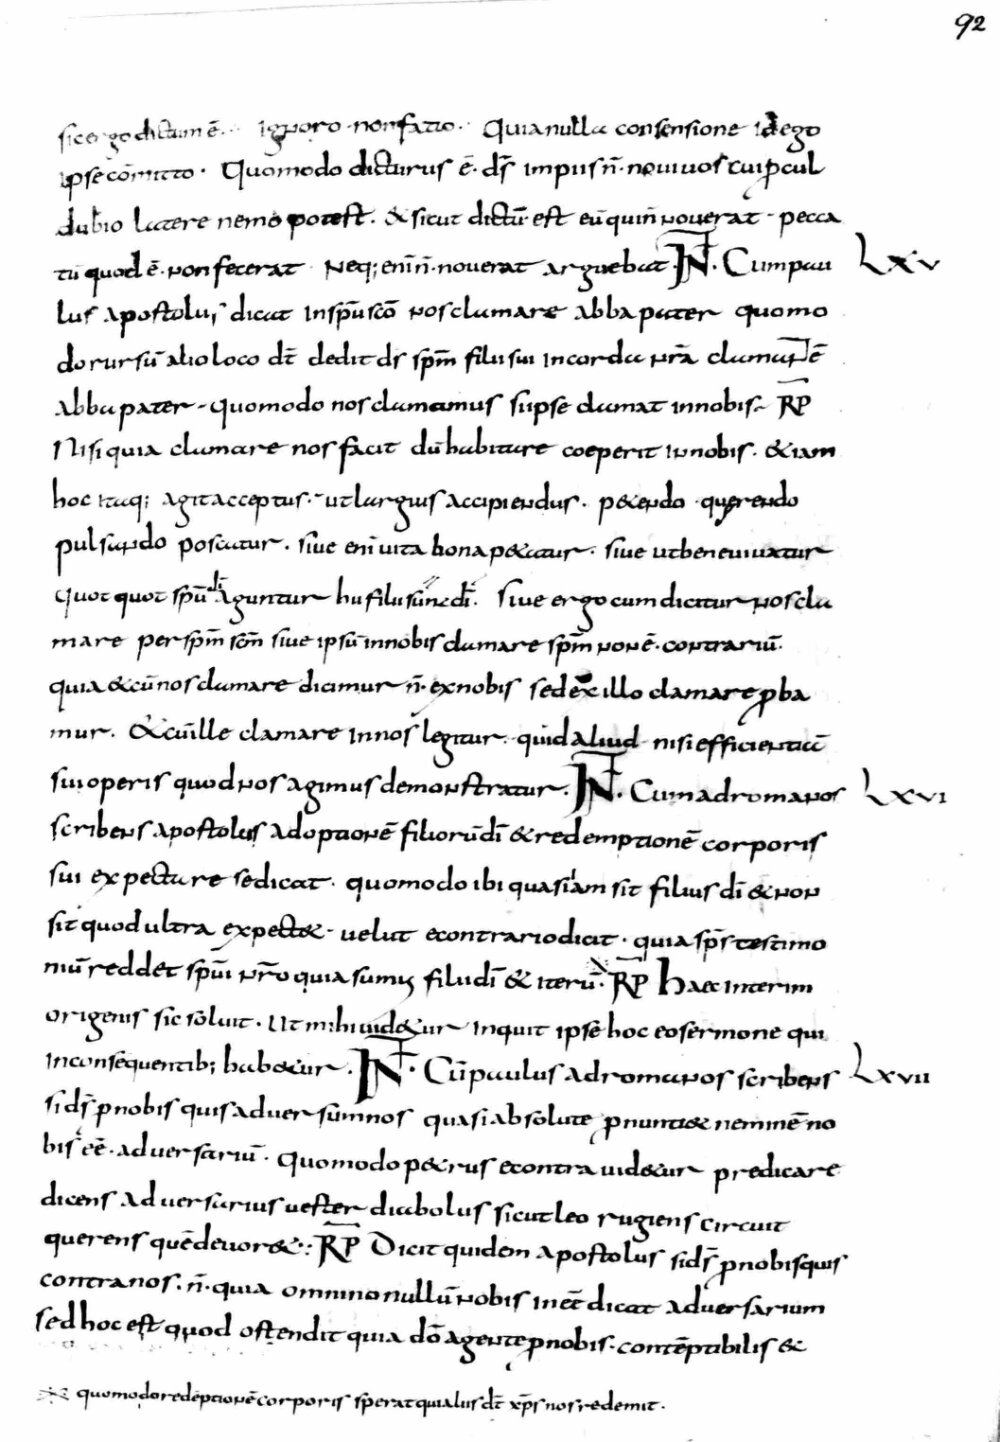 92
sic ergo dictum ē. ignoro non facio. Quia nulla consensione id ego
ipse cōmitto. Quomodo dicturus ē. ds̄ impiis n̄. novi vos cui ꝓcul
dubio latere nemo potest. & sicut dictū est eū qui n̄ noverat peccа
tū quod ē. non fecerat Neq; eni n̄. noverat arguebat. IÑ. Cum pau
lus apostolus dicat in sp̄u sc̄o nos clamare abba pater quomo
do rursū alio loco dt̄ dedit ds̄ sp̄m filii sui in corda nr̄a clamantē
abba pater. quomodo nos clamamus si ipse clamat in nobis. R̄P
Nisi quia clamare nos facit dū habitare coeperit in nobis. & iam
hoc itaq; agit acceptus. ut largius accipiendus. p&endo querendo
pulsando poscatur. sive eni vita bona p&atur. sive ut bene vivatur
Quot quot sp̄u dī aguntur hii filii sunt dī. Sive ergo cum dicitur nos cla
mare per sp̄m sc̄m sive ipsū in nobis clamare sp̄m non ē. contrariū.
quia & cū nos clamare dicimur n̄. ex nobis sed ex illo clamare ꝓba
mur. & cū ille clamare in nos legitur. quid aliud nisi efficientiā
sui operis quod nos agimus demonstratur. IÑ. Cum ad romanos
scribens apostolus adoptionē filiorū dī & redemptionē corporis
sui expectare se dicat. quomodo ibi quasi iam sit filius dī & non
sit quod ultra expect&. velut econtrario dicit. quia sp̄s testimo
niū reddet sp̄ui nr̄o quia sumus filii dī & iterū. R̄P Haec interim
origenis sic solvit. Ut mihi vid&ur inquit ipse hoc eo sermone qui
inconsequentib; hab&ur. IÑ. Cū paulus ad romanos scribens
si ds̄ ꝓ nobis quis adversum nos quasi absolute ꝓnunti& neminē no
bis eē. adversariū. Quomodo p&rus econtra vid&ur predicare
dicens adversarius vester diabolus sicut leo rugiens circuit
querens quē devor&: R̄P Dicit quidem apostolus si ds̄ ꝓ nobis quis
contra nos. n̄. quia omnino nullū nobis inēē dicat adversarium
sed hoc est quod ostendit quia dō agente ꝓ nobis. contēptibilis &
quomodo redēptionē corporis sperat qui alius dt̄ xp̄s nos redemit.
Lxv
Lxvi
Lxvii